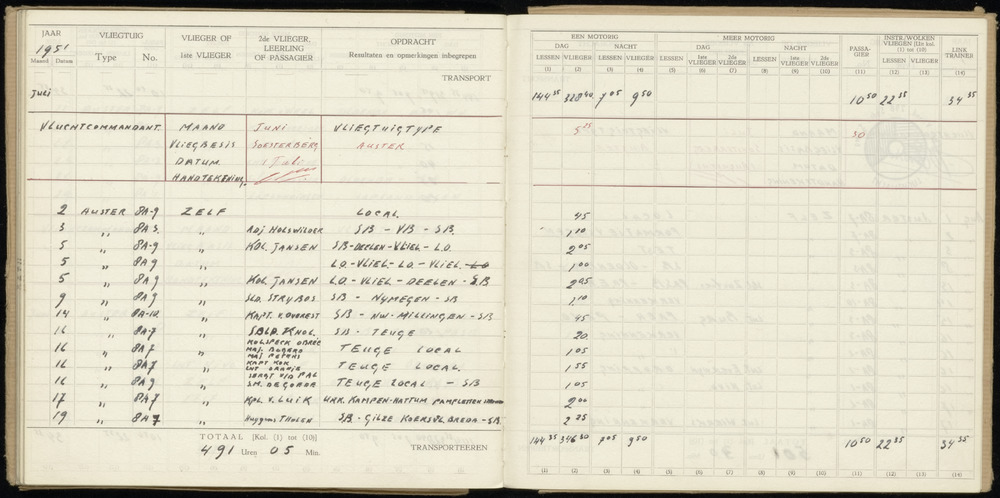 JAAR VLIEGTUIG VLIEGER OF 1ste VLIEGER 2de VLIEGER, LEERLING OF PASSAGIER OPDRACHT
1951 Type No. Resultaten en opmerkingen inbegrepen
Maand Datum
TRANSPORT
Juli
VLUCHTCOMMANDANT. MAAND JUNI VLIEGTUIGTYPE
VLIEGBASIS SOESTERBERG AUSTER
DATUM 1 Juli
HANDTEKENING.
2 AUSTER 8A-9 ZELF LOCAL
3 " 8A3. " ADJ HOLSWILDER SB - VB - SB.
5 " 8A-9 " KOL. JANSEN SB-DEELEN-VLIEL-L.O.
5 " 8A9 " L.O.-VLIEL-LO-VLIEL-LO
5 " 8A9 " KOL JANSEN L.O.-VLIEL-DEELEN-SB
9 " 8A9 " SLD. STRYBOS SB - NYMEGEN - SB
14 " 8A-10. " KAPT. V. OVEREST SB - NW-MILLINGEN - SB
16 " 8A-7 " SBLD. KNOL. SB - TEUGE
16 " 8A7 " MAJ. TEUGE LOCAL
MAJ PETERS
16 " 8A7 " KAPT KOK TEUGE LOCAL.
LNT ORANJE
16 " 8A9 " SERGT V/D PAL TEUGE LOCAL - SB
SM. DE GORDE
17 " 8A7 " KOL. V. LUIK KAMPEN-HATTUM
19 " 8A7 " Huygens THOLEN SB - GILZE BREDA - SB
TOTAAL [Kol. (1) tot (10)]
491 Uren 05 Min. TRANSPORTEEREN
EEN MOTORIG MEER MOTORIG PASSA-GIER INSTR./WOLKEN VLIEGEN [Un kol. (1) tot (10)] LINK TRAINER
DAG NACHT DAG NACHT
LESSEN VLIEGER LESSEN VLIEGER LESSEN 1ste VLIEGER 2de VLIEGER LESSEN 1ste VLIEGER 2de VLIEGER LESSEN VLIEGER
(1) (2) (3) (4) (5) (6) (7) (8) (9) (10) (11) (12) (13) (14)
144 35 328 40 7 05 9 50 10 50 22 35 34 35
5 25 50
45
1 10
2 05
1 00
2 05
1 10
45
20
1 05
1 55
1 05
2 00
2 25
144 35 346 30 7 05 9 50 10 50 22 35 34 35
(1) (2) (3) (4) (5) (6) (7) (8) (9) (10) (11) (12) (13) (14)